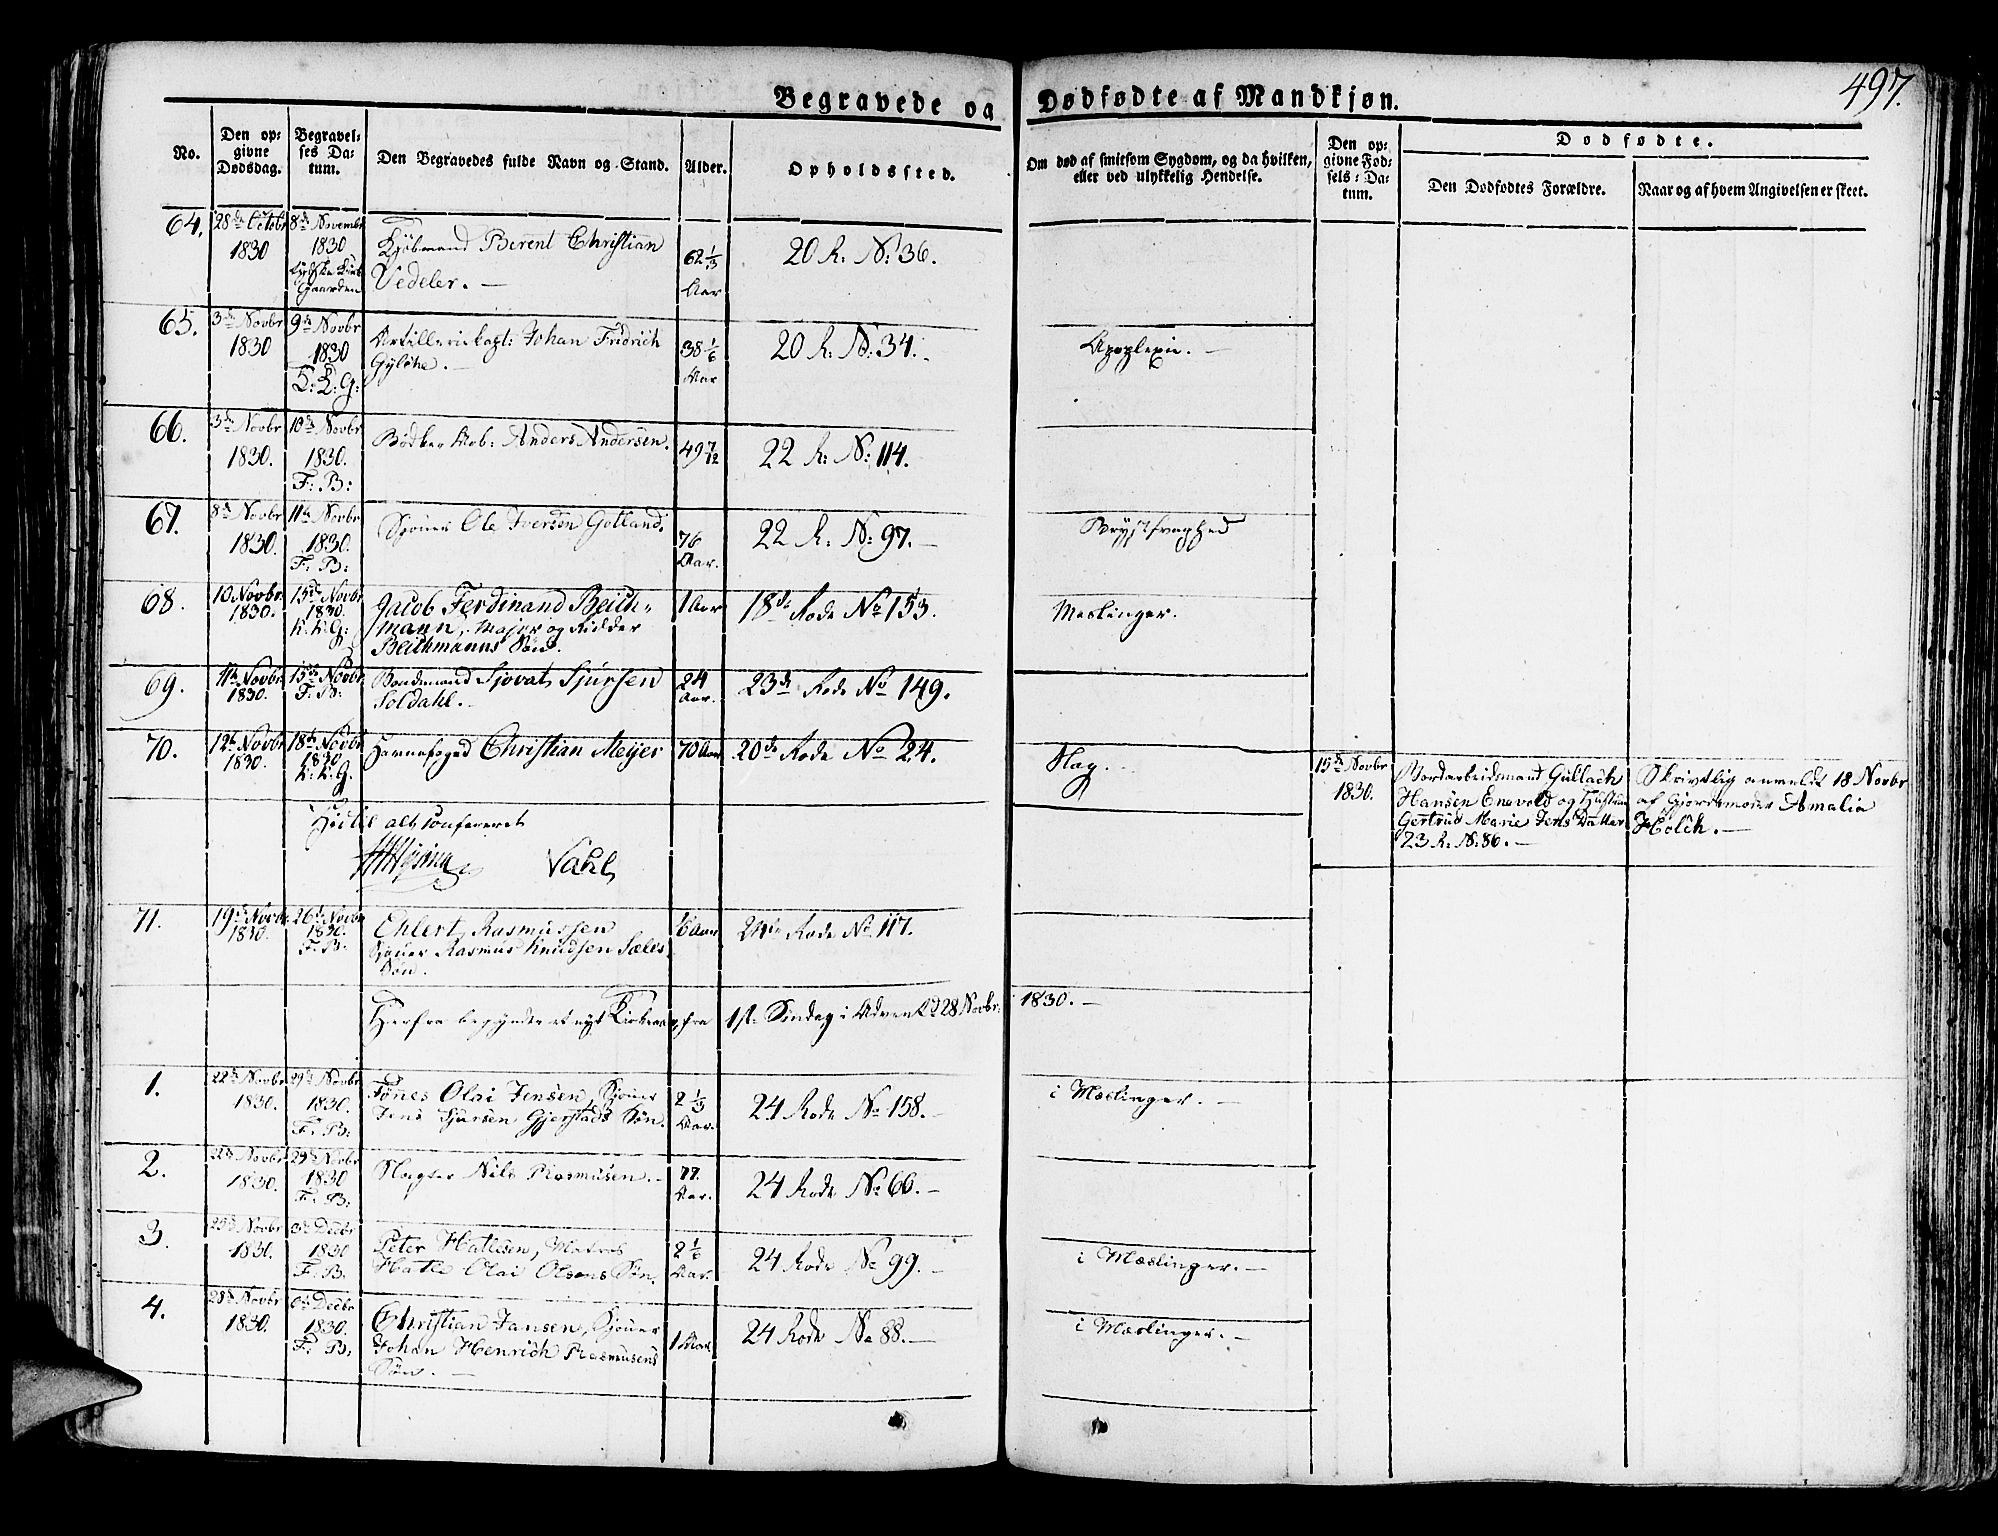 497.
Begravede og Dødfødte af Mandkjøn.
No.
Den opgivne Dødsdag.
Begravelses Datum.
Den Begravedes fulde Navn og Stand.
Alder.
Opholdssted.
Om død af smitsom Sygdom, og da hvilken, eller ved ulykkelig Hendelse.
Den opgivne Fødsels-Datum.
Dødfødte.
Den Dødfødtes Forældre.
Naar og af hvem Angivelsen er skeet.
64. 28de Octobr 1830 8de Novembr 1830
Kjøbmand Berent Christian
Vedeler. —
62 1/3 Aar
20 R: N: 36.
65. 3de Novbr 1830 9de Novbr 1830
Johan Fridrich
38 1/6 Aar
20 R: N: 34.
Apoplexie. —
66. 3de Novbr 1830. 10de Novbr 1830. F: B:
Bødker Anders Andersen.
49 7/12
22 R: N: 114.
67. 8de Novbr 1830. 11te Novbr 1830. F: B:
Sjouer Ole Iversen Gotland.
76 Aar.
22 R: N: 97. —
Brystsvaghed
68. 10 Novbr 1830. 15de Novbr 1830. K: K: G:
Jacob Ferdinand Beich-
mann, Major og Ridder
Beichmanns Søn.
1 Aar
18de Rode No 153.
Meslinger.
69. 11te Novbr 1830. 15de Novbr F: B:
Bondemand Sjovat Sjursen
Soldahl. —
24 Aar.
23de Rode No 149.
70. 12te Novbr 1830. 18de Novbr 1830 K: K: G.
Havnefoged Christian Meyer
70 Aar
20de Rode No 24.
Slag.
15de Novbr 1830.
Bordarbeidsmand Gullach
Hansen Enevold og Hustru
Gertrud Marie Jens Datter
23 R: N: 86. —
Skrivtlig anmeldt 18 Novbr
af Gjordemoder Amalia
Holch. —
Hertil alt confereret
Vahl
71. 19de Novbr 1830. 26de Novbr 1830. F: B.
Ehlert Rasmussen
Sjouer Rasmus Knudsen Sæles
Søn.
6 Aar
24de Rode No 117.
Herfra begyndte et nyt Kirkeaar, fra 1ste Søndag i Advent d 28 Novbr: 1830. —
1. 22de Novbr 1830. 29de Novbr 1830. F: B:
Tønes Olai Jensen, Sjouer
Jens Sjursen Gjerstads Søn.
2 1/3 Aar.
24 Rode No 158. —
i Mæslinger. —
2. 22de Novbr 1830. 29de Novbr 1830 F: B:
Slagter Nils Rasmusen. —
77 Aar.
24 Rode No 66. —
3. 25de Novbr 1830. 3de Decbr 1830 F: B.
Peter Hatlesen, Matros
Hatle Olai Olsens Søn.
2 1/6 Aar.
24 Rode No 99. —
i Mæslinger. —
4. 28de Novbr 1830. 6te Decbr 1830. F: B:
Christian Jansen, Sjouer
Johan Henrich Rasmusens
Søn. —
1
24 Rode No 88. —
i Mæslinger. —